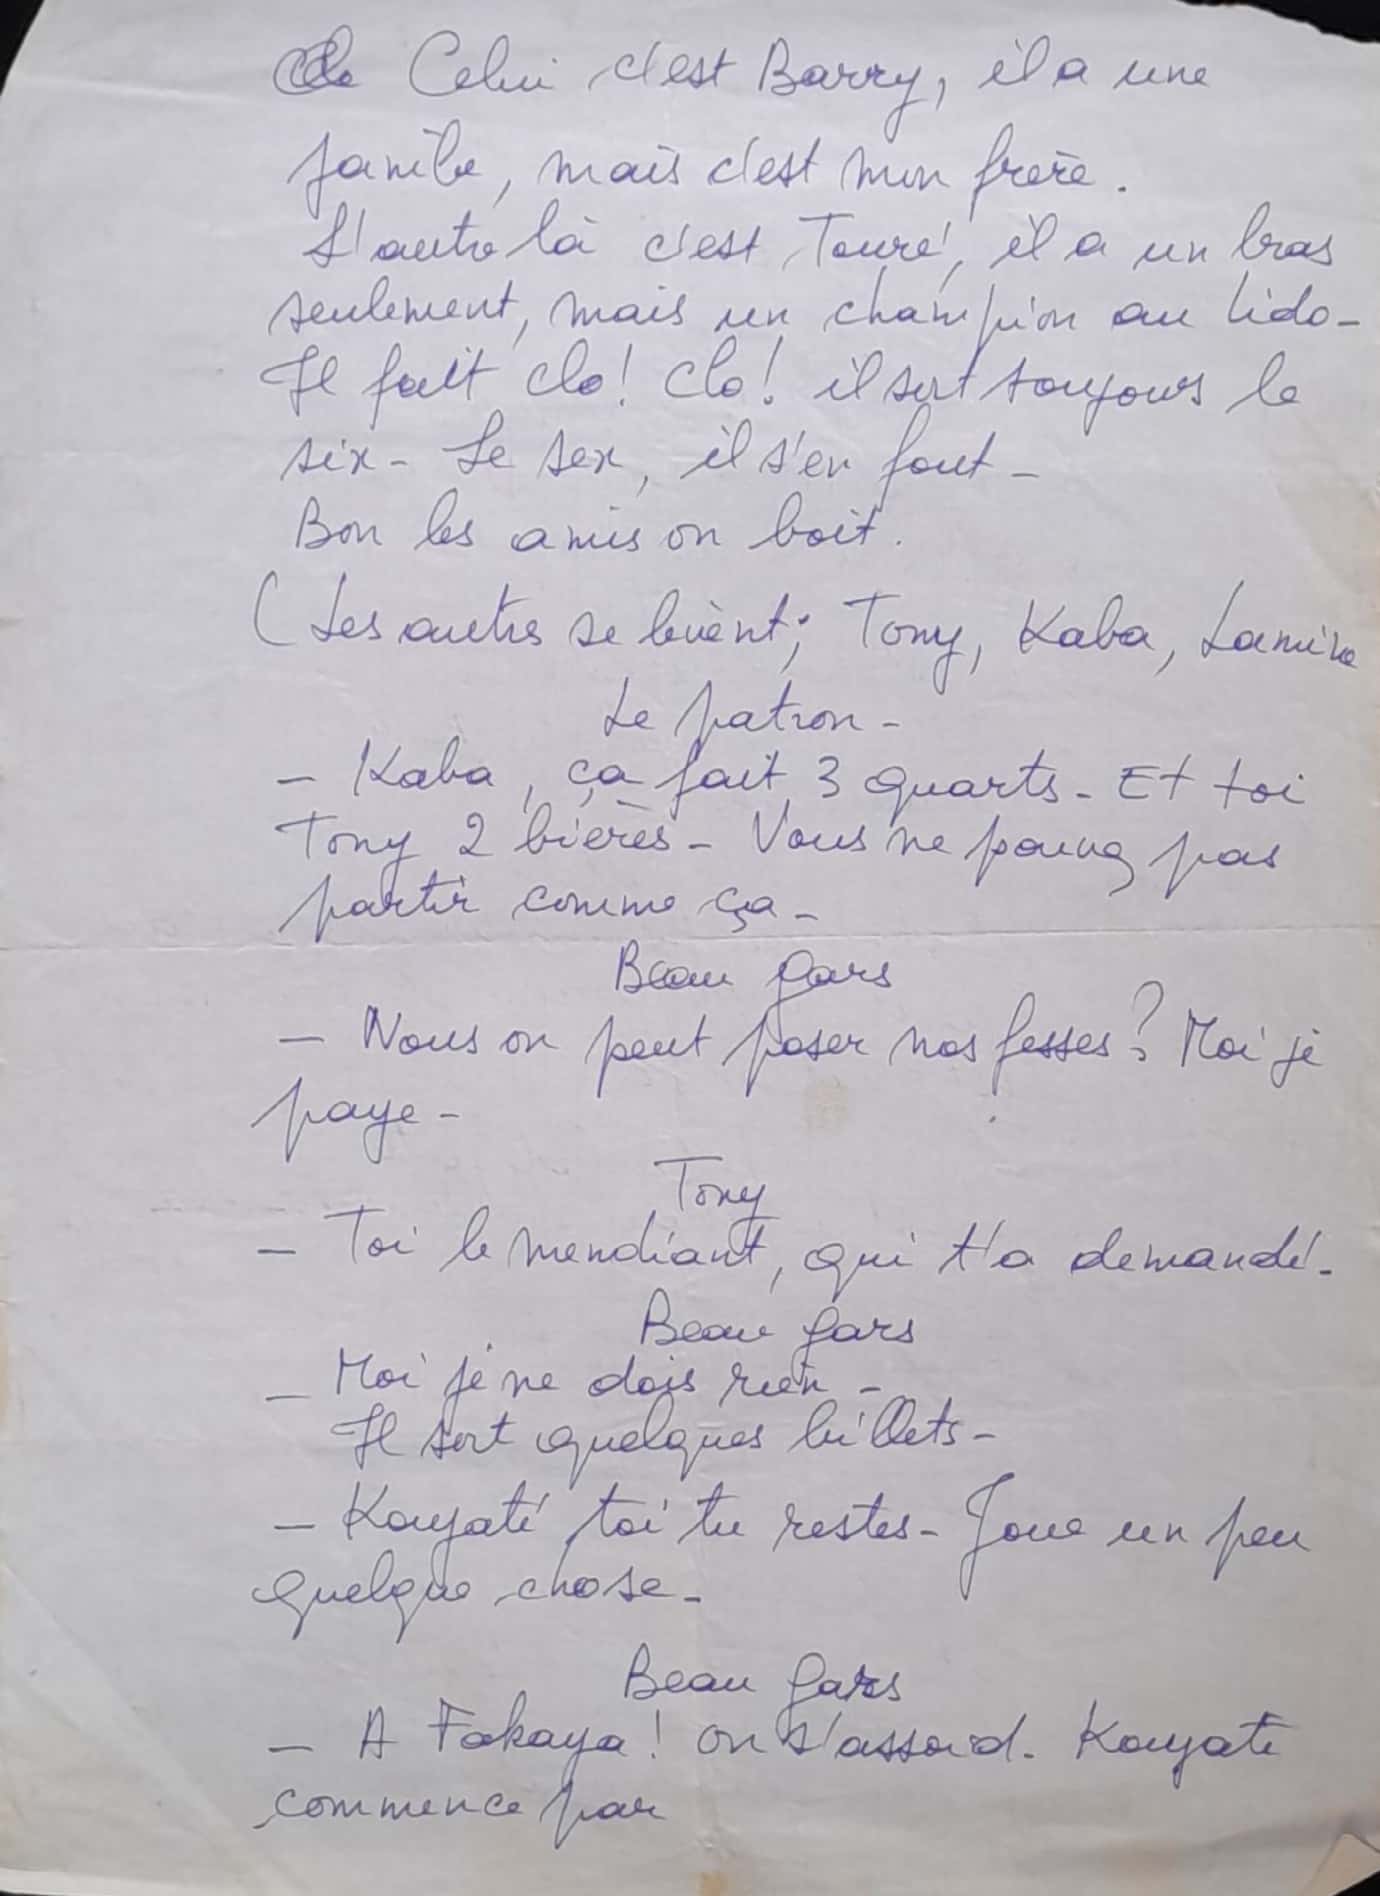 Celui c'est Barry, il a une
jambe, mais c'est mon frère.
L'autre là c'est Touré, il a un bras
seulement, mais un champion au lido -
Il fait clo! clo! il sort toujours le
six - Le sex, il s'en fout -
Bon les amis on boit.
(Les autres se lèvent; Tony, Kaba, Lamine
Le patron -
- Kaba, ça fait 3 quarts - Et toi
Tony 2 bières - Vous ne pouvez pas
partir comme ça -
Beau gars
- Nous on peut poser nos fesses? Moi je
paye -
Tony
- Toi le mendiant, qui t'a demandé -
Beau gars
- Moi je ne dois rien -
Il sort quelques billets -
- Kouyaté toi tu restes - Joue un peu
quelque chose -
Beau gars
- A Fakaya! on s'assoid. Kouyate
commence par